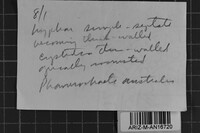 8/1
hyphae simple-septate
becoming thick-walled
cystidia thin-walled
apically encrusted
Phanerochaete australis
ARIZ-M-AN16720